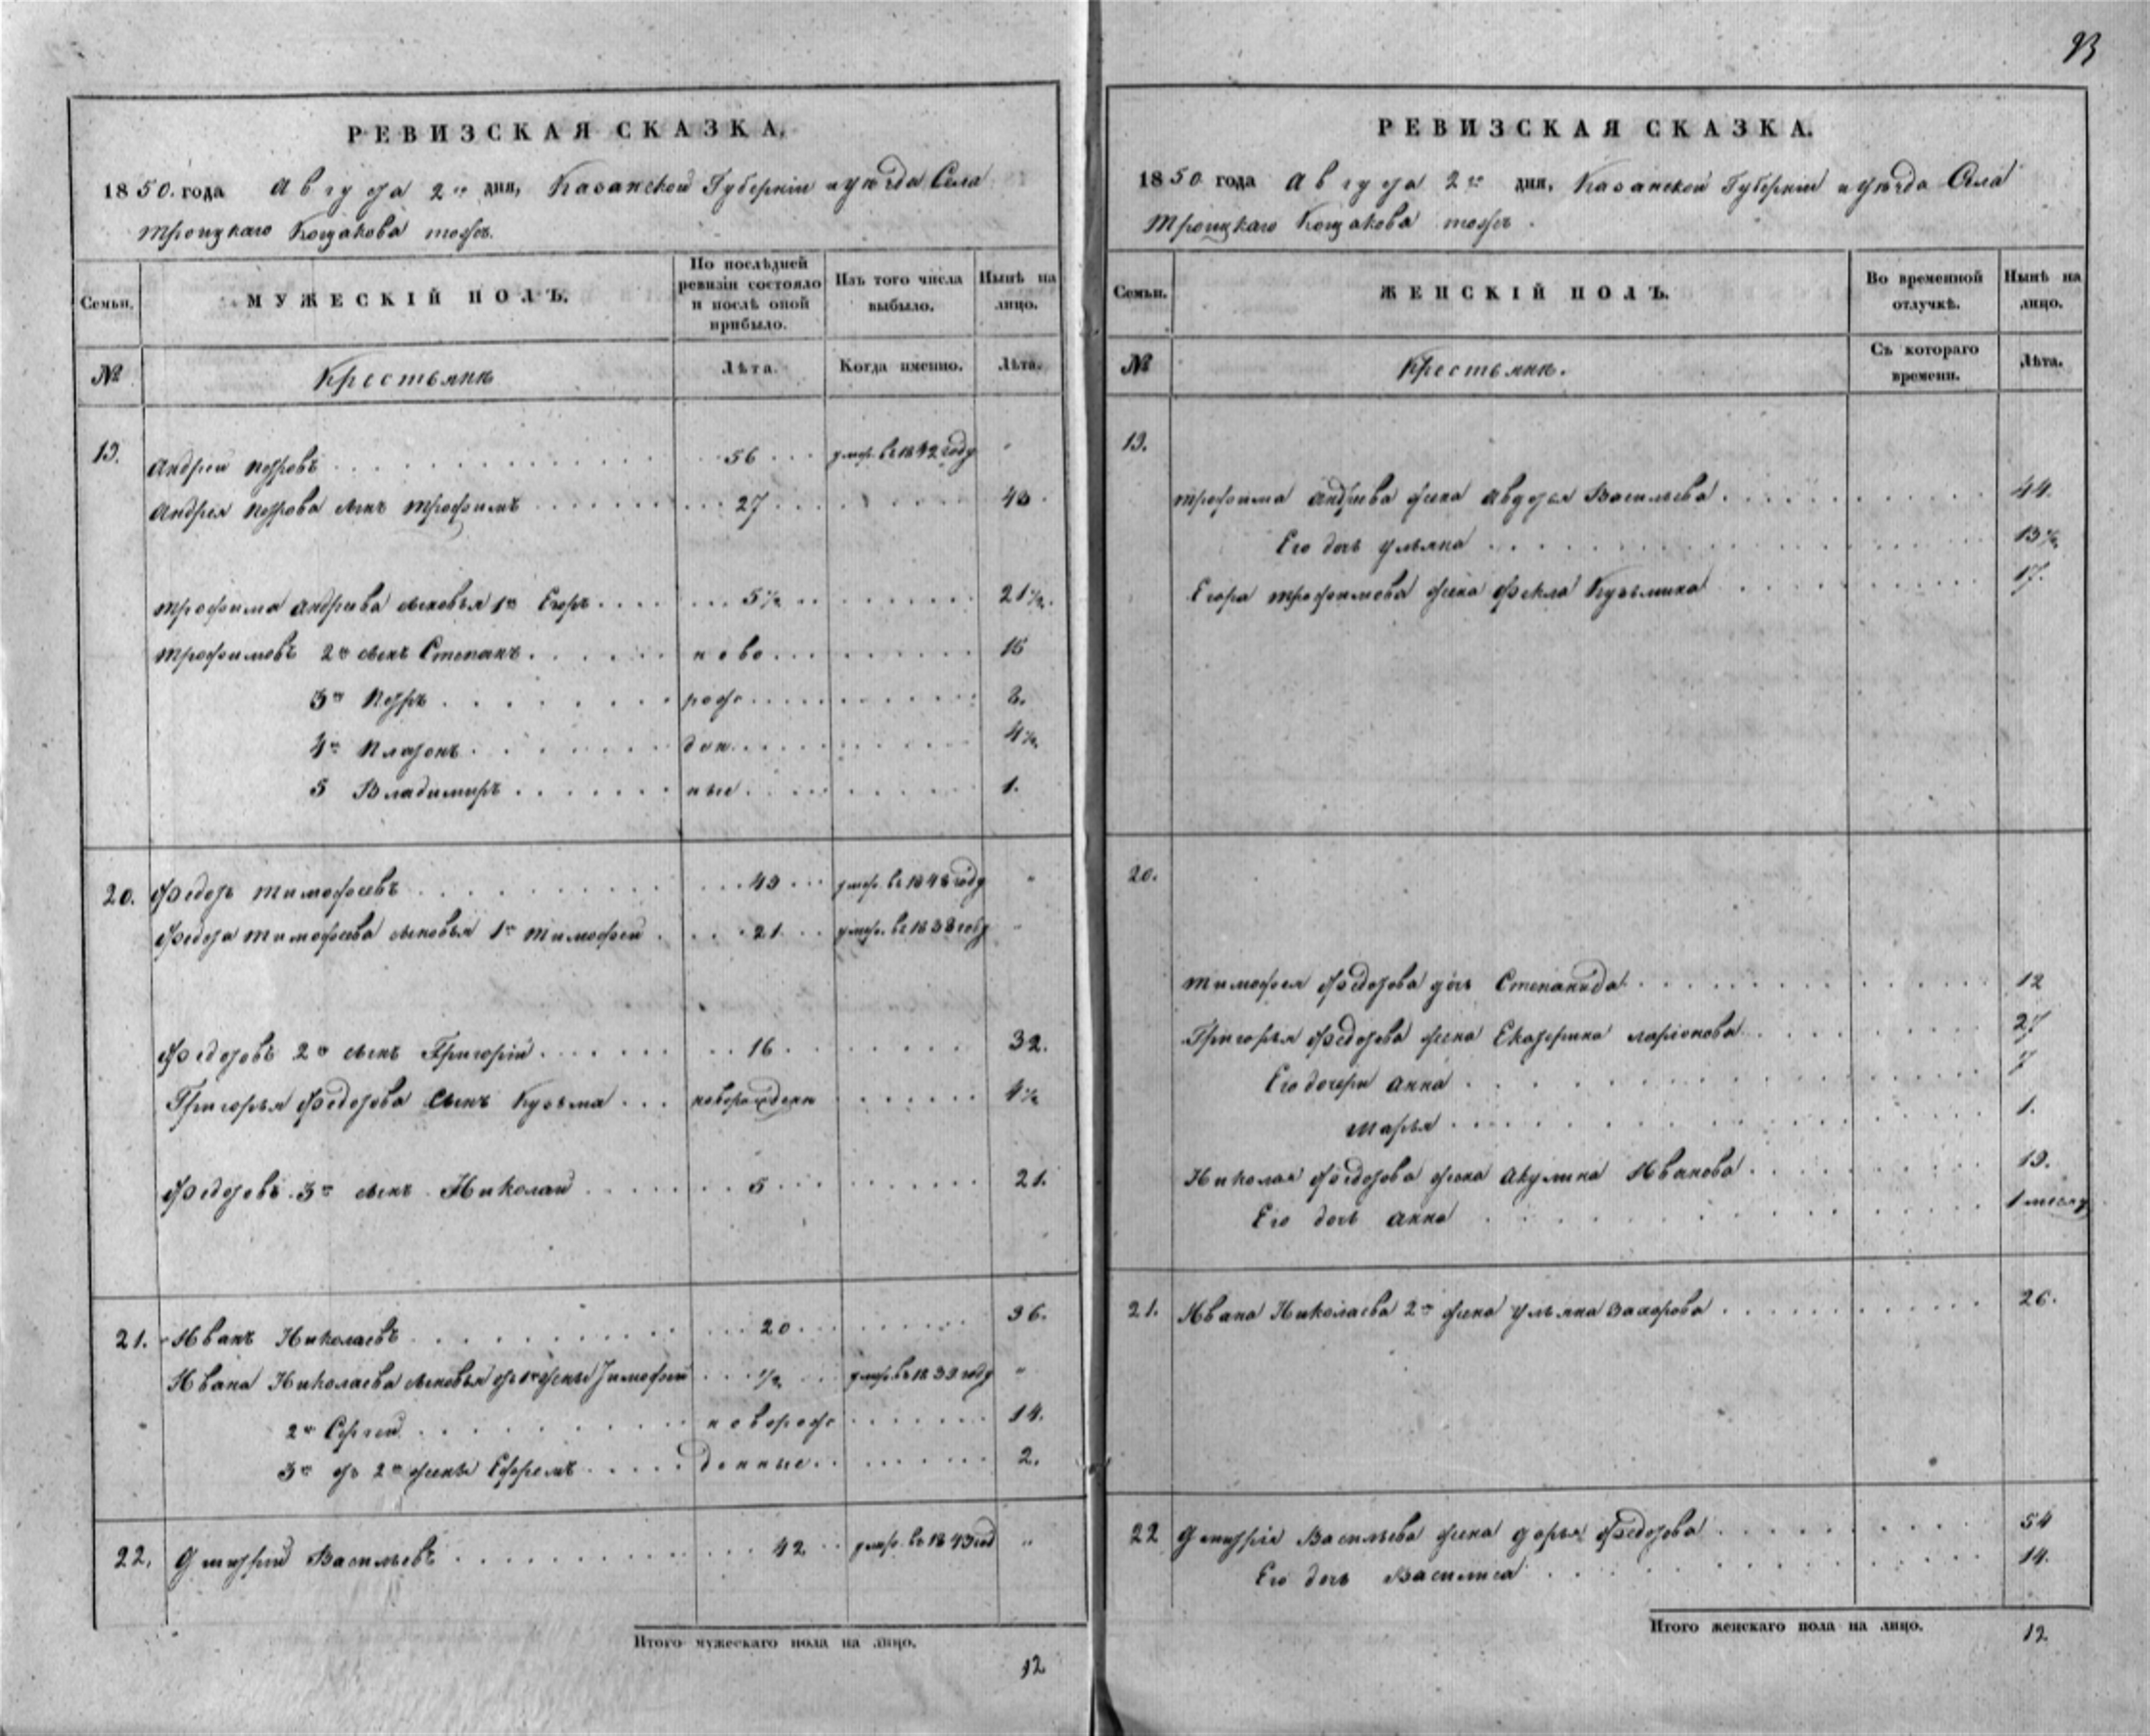 93
РЕВИЗСКАЯ СКАЗКА.
1850. года Августа 2го дня, Казанской Губерніи и уѣзда Села
Троицкаго Кощакова тожъ.
Семьи.
МУЖЕСКІЙ ПОЛЪ.
По послѣдней ревизіи состояло и послѣ оной прибыло.
Изъ того числа выбыло.
Нынѣ на лицо.
№
Крестьяне
Лѣта.
Когда именно.
Лѣта.
19. Андрей Петровъ 56 умер. въ 1842 году "
Андрея Петрова сынъ Трофимъ 27 43
Трофима Андреева сыновья 1й Егоръ 5½ 21½.
Трофимовъ 2й сынъ Степанъ ново 16
3й Петръ рож 8.
4й Платонъ ден 4½
5 Владимиръ ные 1.
20. Федоръ Тимофеевъ 49 умер. въ 1848 году "
Федора Тимофеева сыновья 1й Тимофей 21 умер. въ 1838 году "
Федоровъ 2й сынъ Григорій 16 32.
Григорья Федорова сынъ Кузьма новорожденн 4½
Федоровъ 3й сынъ Николай 5 21.
21. Иванъ Николаевъ 20 36.
Ивана Николаева сыновья отъ 1й жены Тимофей ½ умер. въ 1839 году "
2й Сергей новорож 14.
3й отъ 2й жены Ефремъ денные 2.
22. Дмитрій Васильевъ 42 умер. въ 1843 год "
Итого мужескаго пола на лицо.
12
РЕВИЗСКАЯ СКАЗКА.
1850 года Августа 2го дня, Казанской Губерніи и уѣзда Села
Троицкаго Кощакова тожъ.
Семьи.
ЖЕНСКІЙ ПОЛЪ.
Во временной отлучкѣ.
Нынѣ на лицо.
№
Крестьяне.
Съ котораго времени.
Лѣта.
19.
Трофима Андреева жена Авдотья Васильева 44.
Его дочь Ульяна 13½
Егора Трофимова жена Фекла Кузьмина 17.
20.
Тимофея Федорова дочь Степанида 12
Григорья Федорова жена Екатерина Ларіонова 27
Его дочери Анна 7
Марья 1.
Николая Федорова жена Акулина Иванова 19.
Его дочь Анна 1 месяц
21. Ивана Николаева 2я жена Ульяна Захарова 26.
22 Дмитрія Васильева жена Дарья Федорова 54
Его дочь Василиса 14.
Итого женскаго пола на лицо.
12.